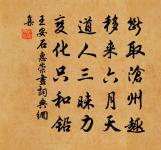 斷取滄州趣
移来六月天
道人三昧力
变化只和鉛
王安石惠崇畫詞典網
集